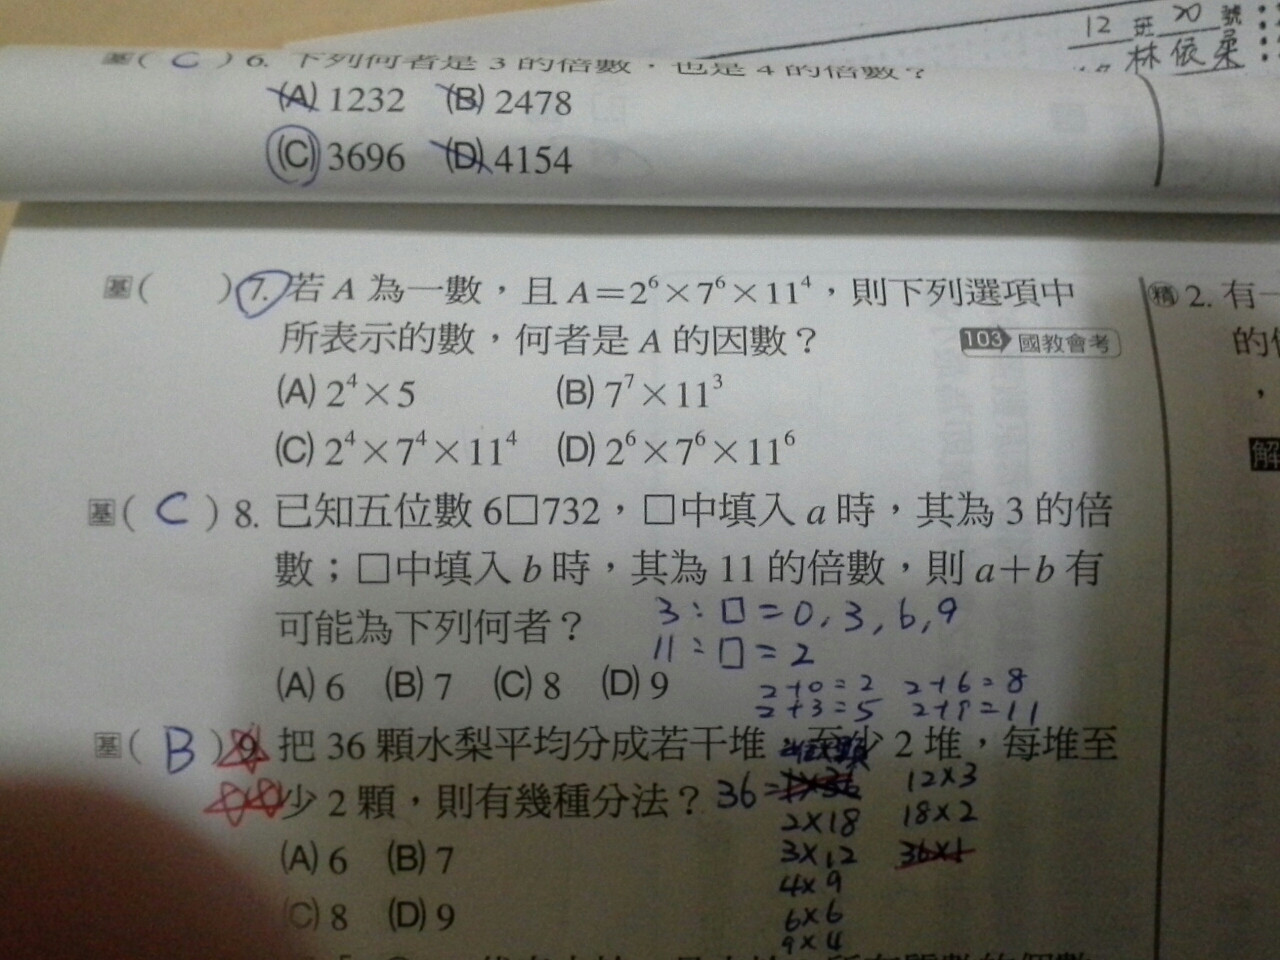 12 班 20 號
林依柔
基( C ) 6. 下列何者是 3 的倍數，也是 4 的倍數？
(A) 1232 (B) 2478
(C) 3696 (D) 4154
基( ) 7. 若 A 為一數，且 A＝2⁶×7⁶×11⁴，則下列選項中
所表示的數，何者是 A 的因數？ 103 國教會考
(A) 2⁴×5 (B) 7⁷×11³
(C) 2⁴×7⁴×11⁴ (D) 2⁶×7⁶×11⁶
基( C ) 8. 已知五位數 6□732，□中填入 a 時，其為 3 的倍
數；□中填入 b 時，其為 11 的倍數，則 a＋b 有
可能為下列何者？
3：□＝0, 3, 6, 9
11：□＝2
(A) 6 (B) 7 (C) 8 (D) 9
2+0=2 2+6=8
2+3=5 2+9=11
基( B ) 9. 把 36 顆水梨平均分成若干堆，至少 2 堆，每堆至
少 2 顆，則有幾種分法？
36=1×36 12×3
2×18 18×2
3×12 36×1
4×9
6×6
9×4
(A) 6 (B) 7
(C) 8 (D) 9
精 2. 有一
的
，
解